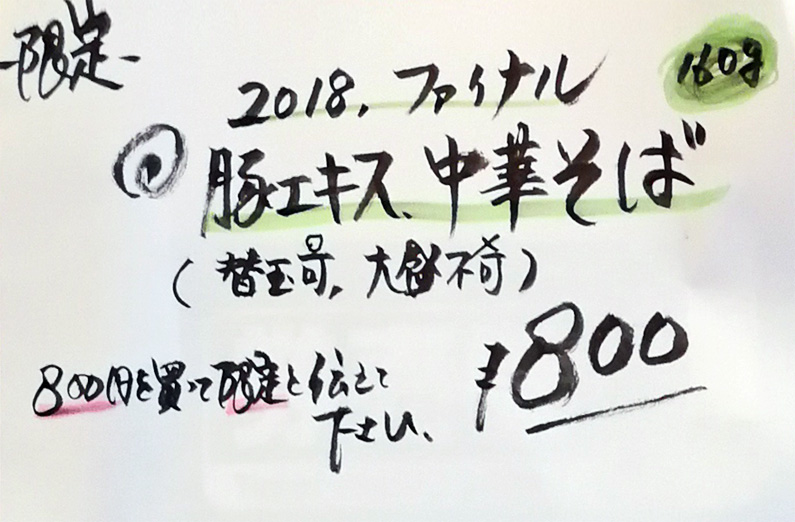 -限定-
160g
2018.ファイナル
豚エキス、中華そば
(替玉可、大盛不可)
¥800
800円を買って限定と伝えて
下さい、